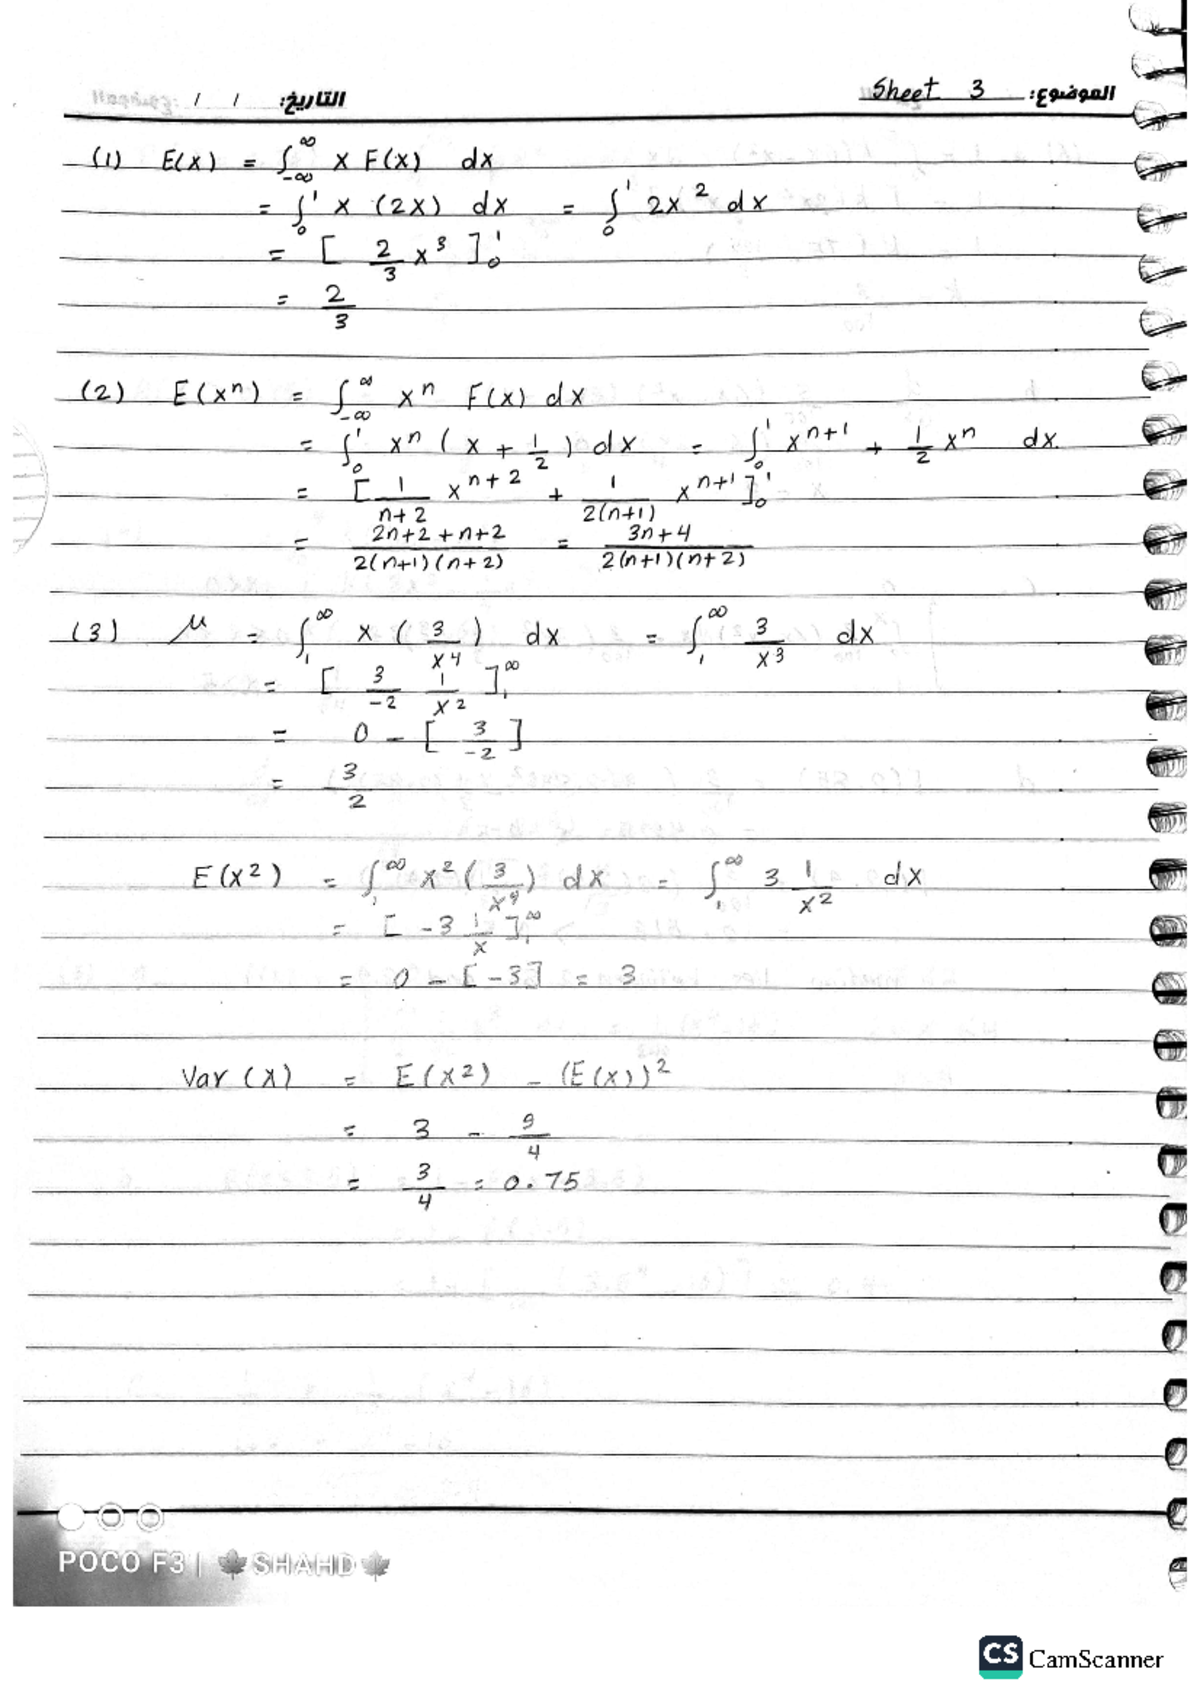 الموضوع: Sheet 3 التاريخ: / /
(1) E(x) = ∫_{-∞}^{∞} x F(x) dx
= ∫_0^1 x (2x) dx = ∫_0^1 2x^2 dx
= [ 2/3 x^3 ]_0^1
= 2/3
(2) E(x^n) = ∫_{-∞}^{∞} x^n F(x) dx
= ∫_0^1 x^n ( x + 1/2 ) dx = ∫_0^1 x^{n+1} + 1/2 x^n dx.
= [ 1/(n+2) x^{n+2} + 1/(2(n+1)) x^{n+1} ]_0^1
= (2n+2+n+2)/(2(n+1)(n+2)) = (3n+4)/(2(n+1)(n+2))
(3) μ = ∫_1^∞ x ( 3/x^4 ) dx = ∫_1^∞ 3/x^3 dx
= [ 3/-2 1/x^2 ]_1^∞
= 0 - [ 3/-2 ]
= 3/2
E(x^2) = ∫_1^∞ x^2 ( 3/x^4 ) dx = ∫_1^∞ 3 1/x^2 dx
= [ -3 1/x ]_1^∞
= 0 - [-3] = 3
Var (x) = E(x^2) - (E(x))^2
= 3 - 9/4
= 3/4 = 0.75
POCO F3 | SHAHD
CS CamScanner